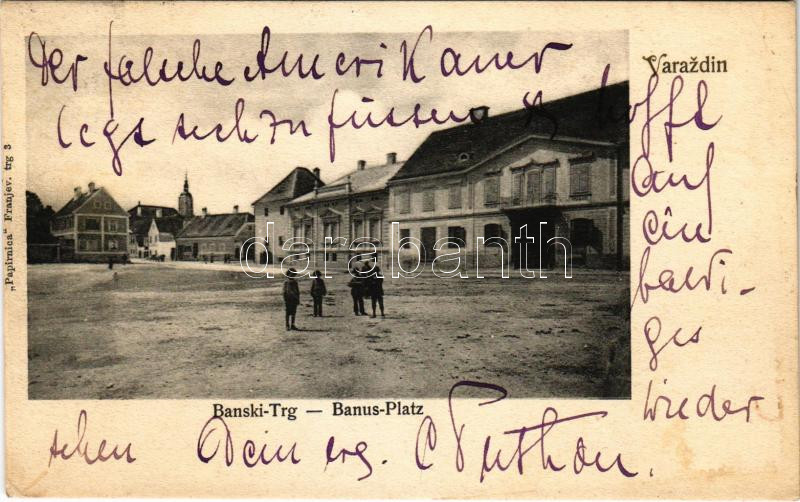 Der falsche Amerikaner
legt sich zu füssen & hofft
auf
ein
baldi-
ges
wieder
sehen Dein erg.
Varaždin
"Papirnica" Franjev. trg 3
darabanth
Banski-Trg — Banus-Platz